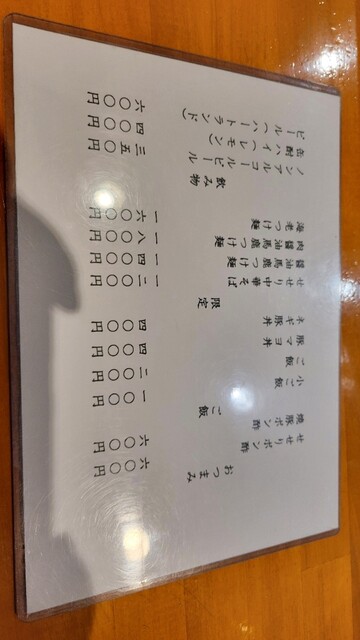 おつまみ
せせりポン酢 六〇〇円
焼豚ポン酢 六〇〇円
ご飯
小ご飯 一〇〇円
ご飯 二〇〇円
豚マヨ丼 四〇〇円
ネギ豚丼 四〇〇円
限定
せせり中華そば 一二〇〇円
醤油馬鹿つけ麺
肉醤油馬鹿つけ麺 一八〇〇円
海老つけ麺 一六〇〇円
飲み物
ノンアルコールビール 三五〇円
缶酎ハイ（レモン） 四〇〇円
ビール（ハートランド） 六〇〇円